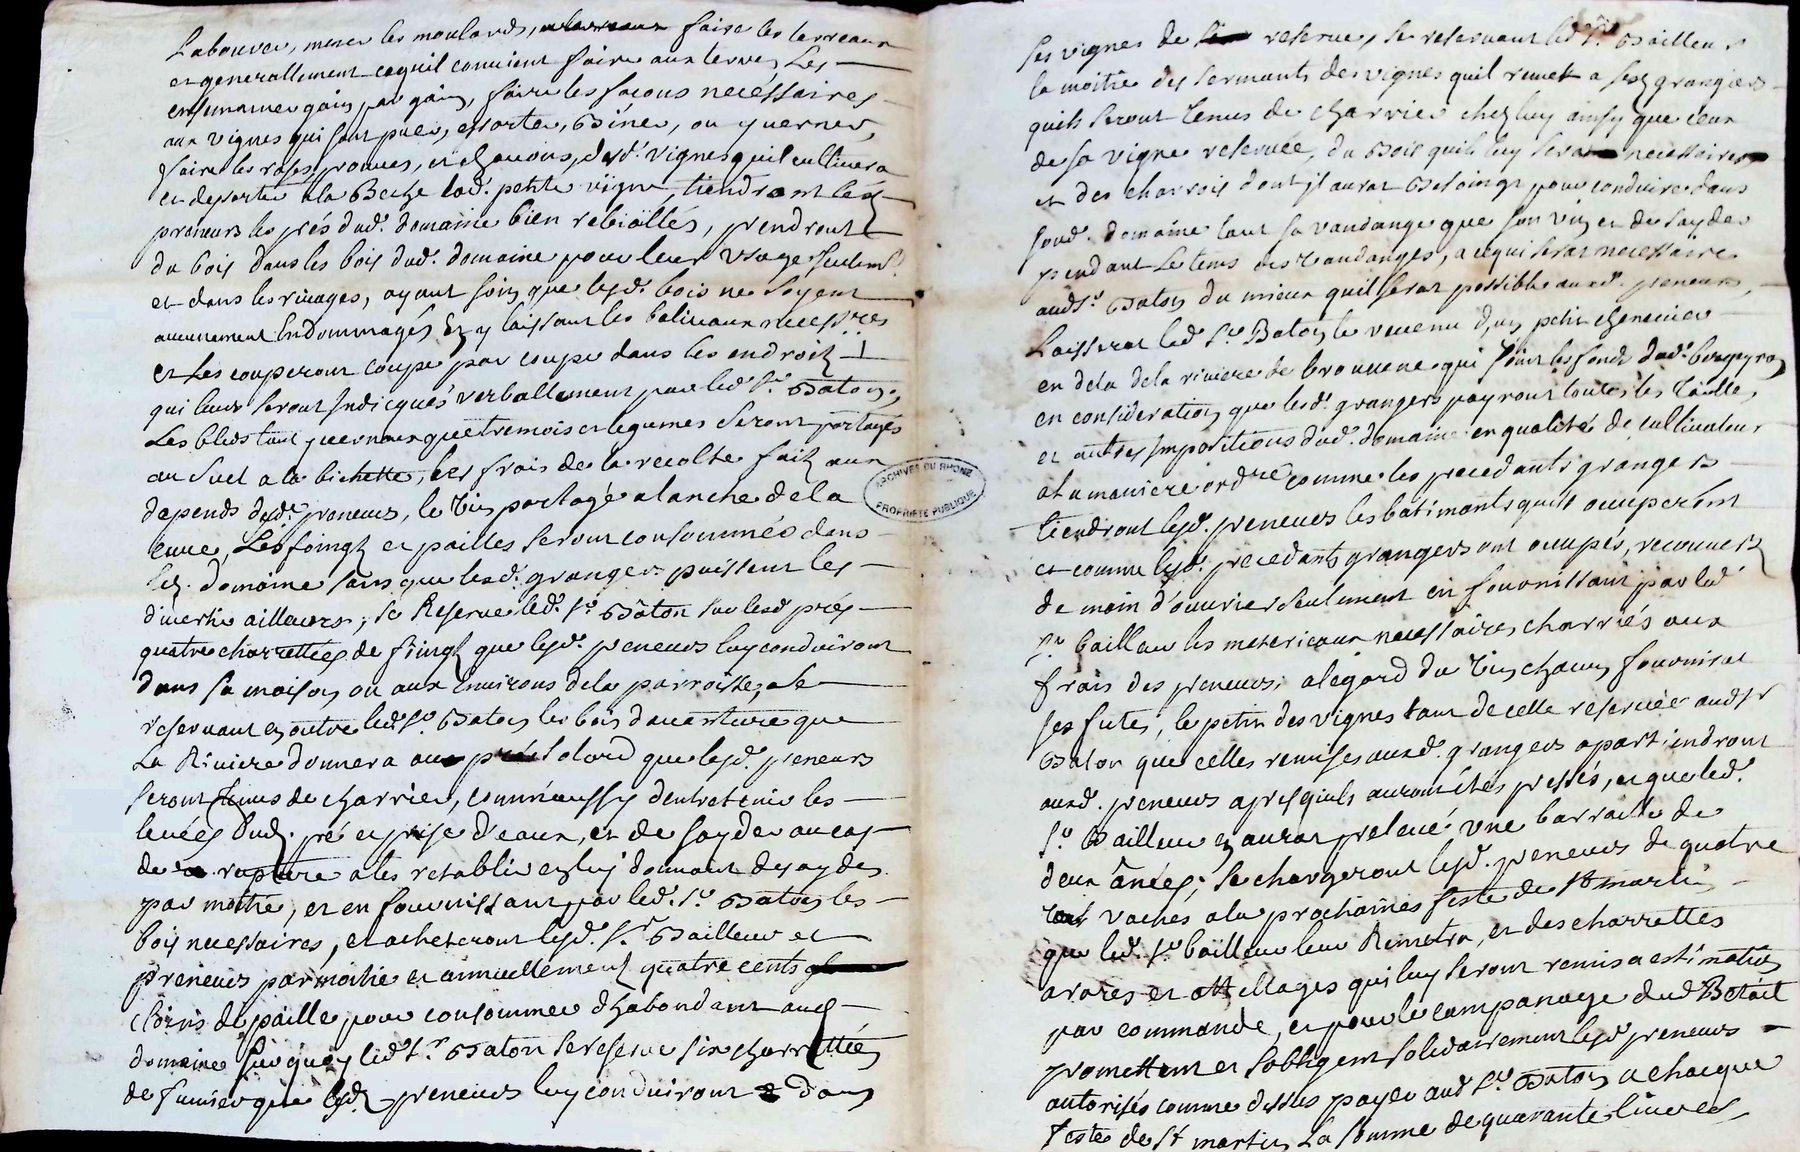 Labourer, mener les moulards, faire les terreaux
et generallement cequil convient faire aux terres Les
ensemancer gain par gain, faire les façons necessaires
aux vignes qui sont puer, essorter, Biner, ou yverner,
faire les roses prouues, et chauons, desd. vignes quil cultivera
et deporter a la Beche lad. petite vigne, tiendront lesd
preneurs les prés dud. domaine bien rebiollés, prendront
du bois dans les bois dud. domaine pour leur usage seulemt.
et dans les rivages, ayant soin que lesd. bois ne soyent
aucunement Endommagés Et y laissant les baliveaux necessres
et Les couperont coupe par coupe dans les endroits
qui leurs seront Indicqués verballement par led. Sr. Baton,
Les bleds tant yvernaux que tremois et legumes seront partagés
au suel a la bichette, les frais de la recolte faits aux
depends desd. preneurs, le vin partagé a lanche de la
cuve, Les foings et pailles seront consommés dans
led. domaine sans que lesd. granger puissent les
divertir ailleurs, se Reserve led. Sr Bâton sur lesd prés
quatre charrettées de foings que lesd. preneurs luy conduiront
dans sa maison ou aux Environs de la parroisse, se
reservant en outre led. Sr Baton les bois d'aventure que
La Riviere donnera au pré Tolard que lesd. preneurs
seront tenus de charrier, comme aussy d'entretenir les
levées dud. pré et prise d'eaux, et de sayder au cas
de rupture a les retablir en luy donnant des aydes
par moitié, et en fournissant par led. Sr. Baton les
bois necessaires, et acheteront lesd. Sr Bailleur et
preneurs par moitié et annuellement quatre cents
cloins de paille pour consommer d'habondant aud
domaine sur quoy led. Sr Baton se reserve six charrettées
de fumier que lesd. preneurs luy conduiront dans
ses vignes de reserve, se reservant led Sr. Bailleur
la moitié des serments des vignes quil remet a sesd grangers
quils seront tenus de charrier chez luy ainsy que ceux
de sa vigne reservée, du Bois quil luy sera necessaires
et des charrois dont il aurat Besoingt pour conduire dans
sond. domaine tant sa vandange que son vin et de sayder
pendant Le tems des vandanges, a cequi serat necessaire
aud Sr. Baton du mieux quil serat possible auxd. preneurs,
Laisserat led Sr. Baton le revenu d'un petit chenevier
en dela de la riviere de brevenne qui joint les fonds dud. bergeyron
en consideration que lesd. grangers payront toutes les Tailles,
et autres Impositions dud. domaine en qualité de cultivateur
a la maniere ordre comme les precedants grangers
tiendront lesd. preneurs les batimants quils occuperont
et comme lesd. precedants grangers ont occupés, recouverts
de main d'ouvrier seulement en fournissant par led
Sr. bailleur les matericaux necessaires charriés aux
frais des preneurs, a legard du vin chacun fournirat
ses futes, le petin des vignes tant de celle reservée aud Sr
Baton que celles remises auxd. grangers apartiendront
auxd. preneurs apres quils auront étés pressés, et que led.
Sr. Bailleur en aurat prelevé une barraile de
deux ânées, se chargeront lesd. preneurs de quatre
vaches a la prochaines feste de St martin
que led. Sr. bailleur leur Remetra, et des charrettes
arares et attellages qui luy seront remis a estimation
par commande, et pour le campanage dud Betail
promettent et sobligent solidairement lesd preneurs
autorisés comme dessus payer aud Sr. Baton a chaque
feste de St martin La somme de quarante livres
ARCHIVES DU RHONE
PROPRIÉTÉ PUBLIQUE